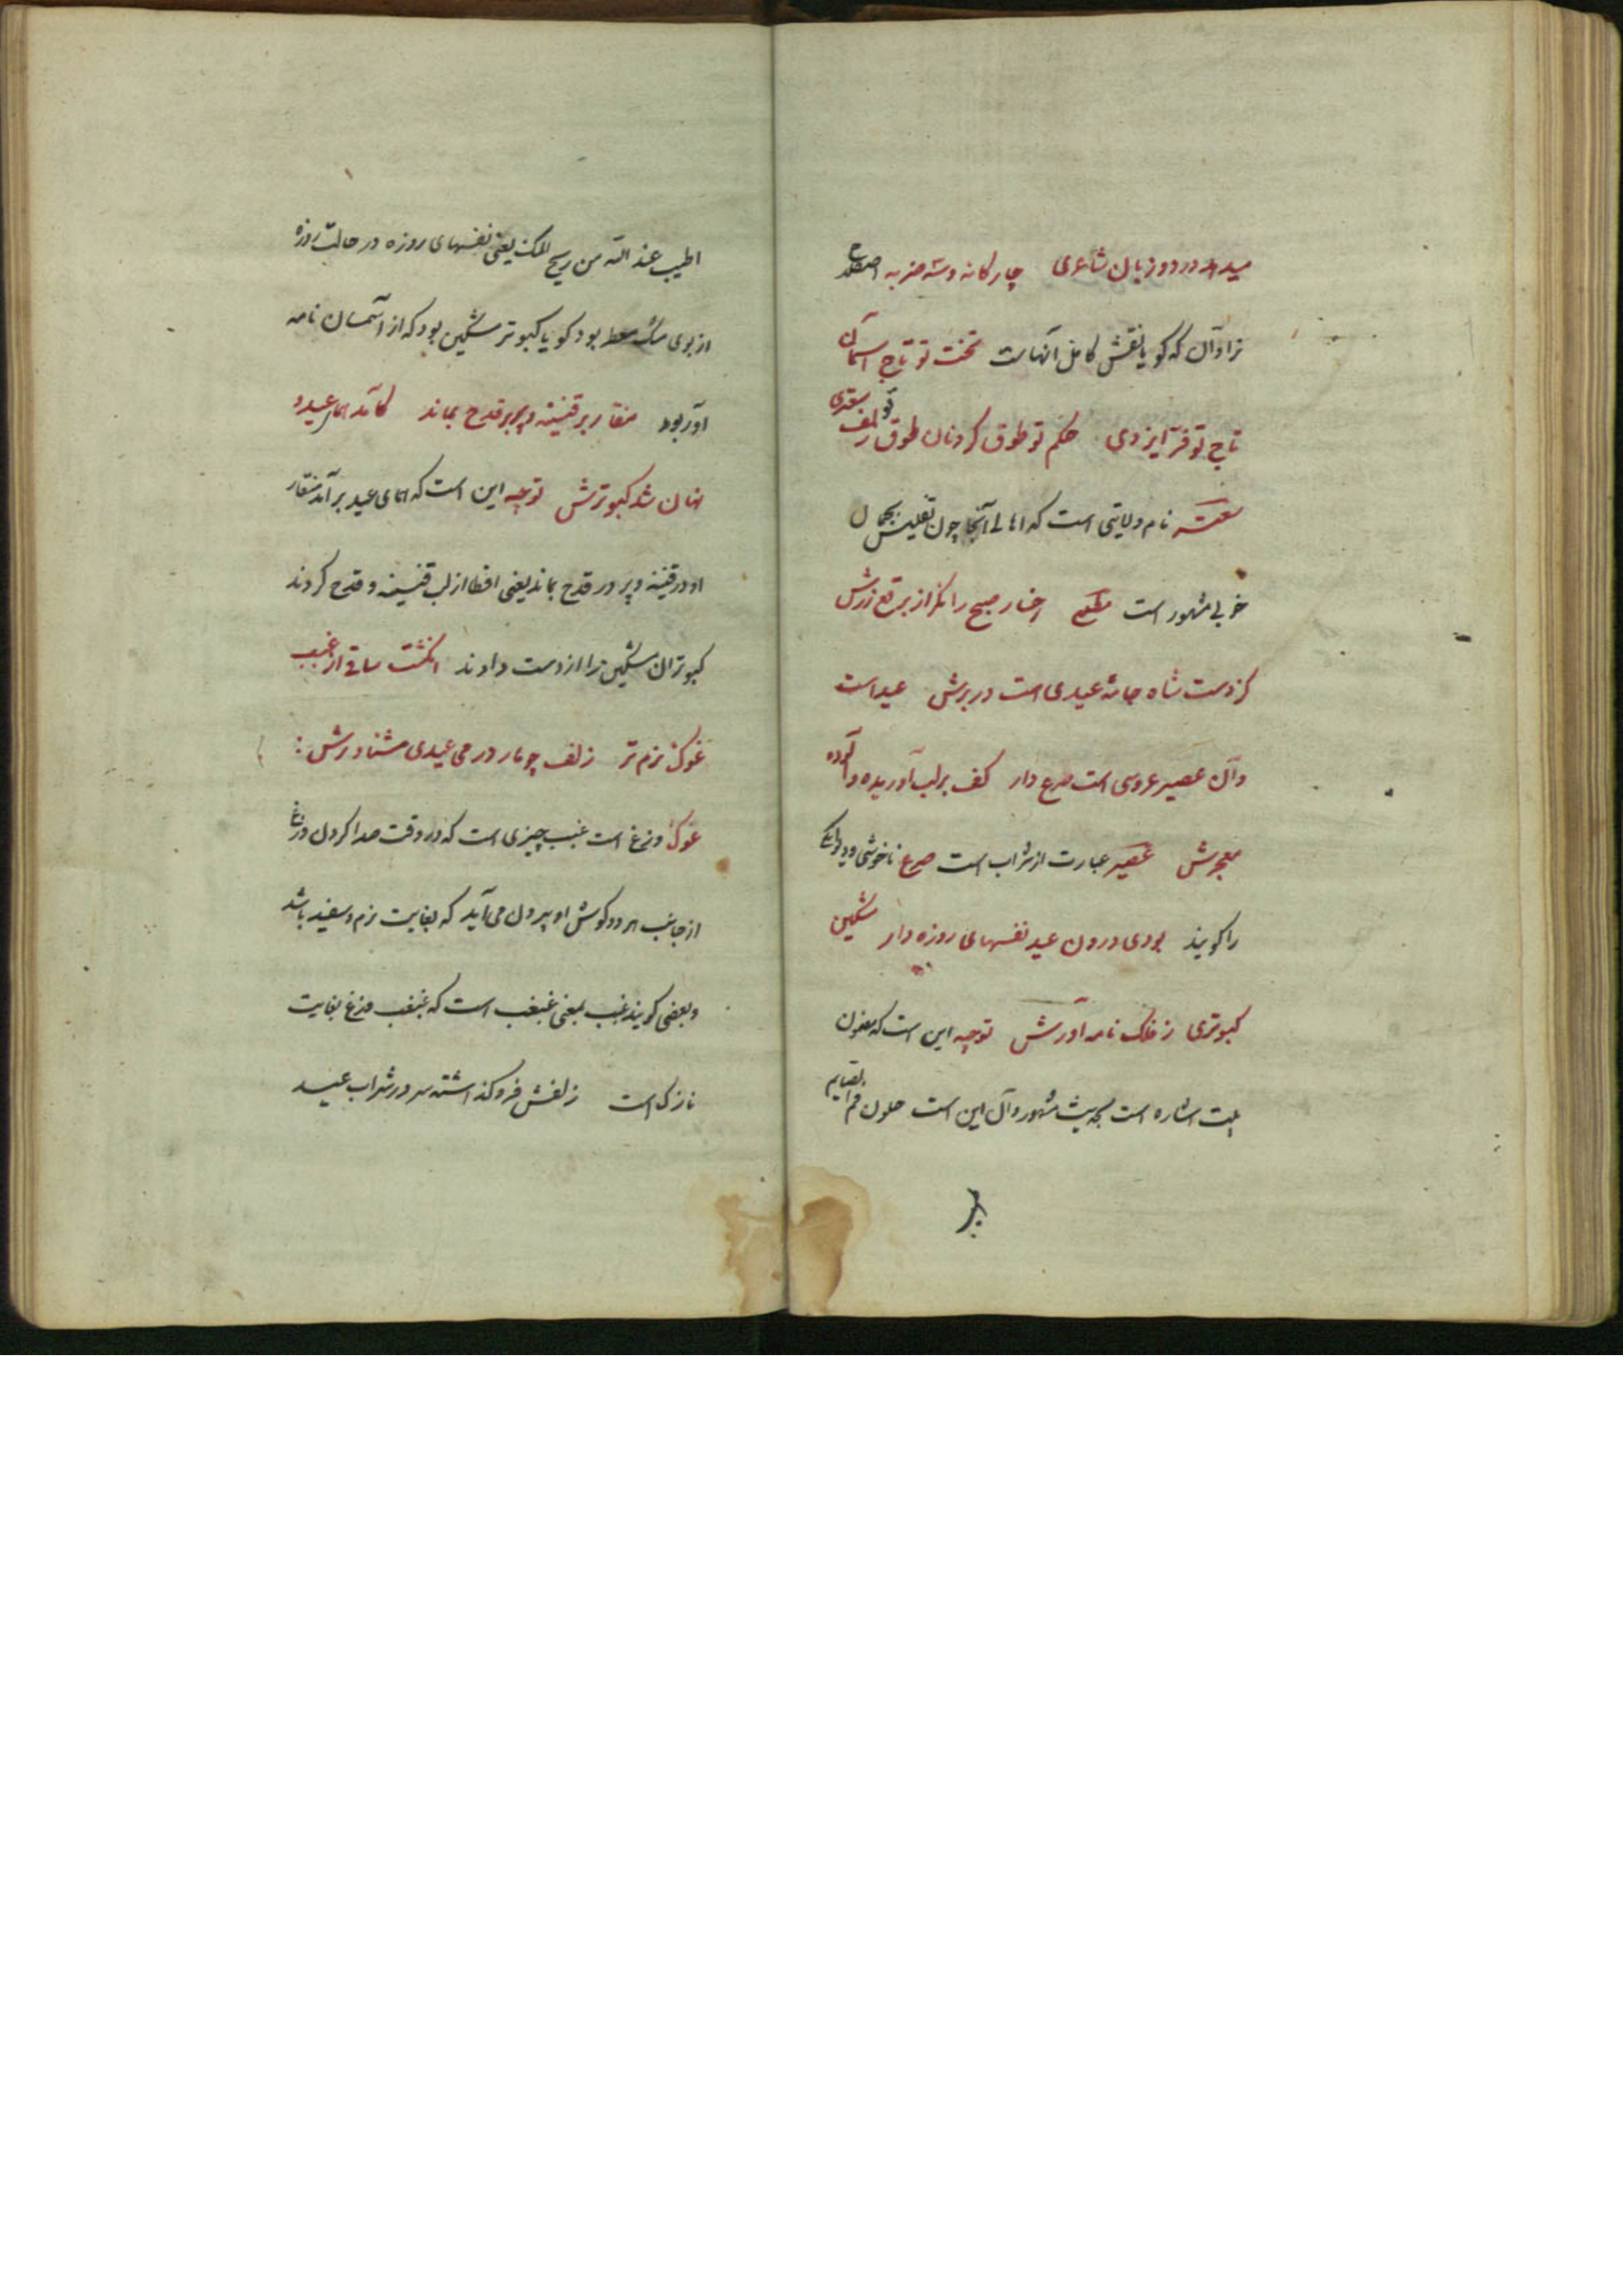 میدهد در دو زبان شاعری چارکانه و سه ضربه اصطلاح
نراد آن که کویا نقش کامل آنهاست تخت تو تاج آسمان
تاج تو فر ایزدی حکم تو طوق کردنان طوق تو زلف سعتری
نام ولایتی است که اهالی آنجا چون تفلیس بجمال
خوبی مشهور است مطلع رخسار صبح را نکر از برقع زرش
کز دست شاه جامه عیدی است در برش عید است
و آن عصیر عروسی است صرع دار کف بر لب آوریده و آلوده
معجرش عصیر عبارت از شراب است صرع ناخوشی و دیوانکی
را کویند بودی درون عید نفسهای روزه دار مشکین
کبوتری ز فلک نامه آورش توجیه این است که مضمون
بیت اشاره است بحدیث مشهور و آن این است خلوف فم الصایم
اطیب عند الله من ریح المسک یعنی نفسهای روزه در حالت روزه
از بوی مشک بود کویا کبوتر مشکین بود که از آسمان نامه
آور بود منقار بر قنینه و پر بر قدح بماند کآمد همای عید و
نهان شد کبوترش توجیه این است که همای عید بر آمد منقار
او در قنینه و پر در قدح بماند یعنی افطار از لب قنینه و قدح کردند
کبوتران مشکین را از دست دادند انکشت ساقی از غبب
غوک نرم تر زلف چو مار در می عیدی شناورش :
غوک وزغ است غبب چیزی است که در وقت صدا کردن وزغ
از جانب هر دو کوش او بیرون می آید که بغایت نرم و سفید باشد
و بعضی کویند غبب بمعنی غبغب است که غبغب وزغ بغایت
نازک است زلفش فرو کذاشته سر در شراب عید